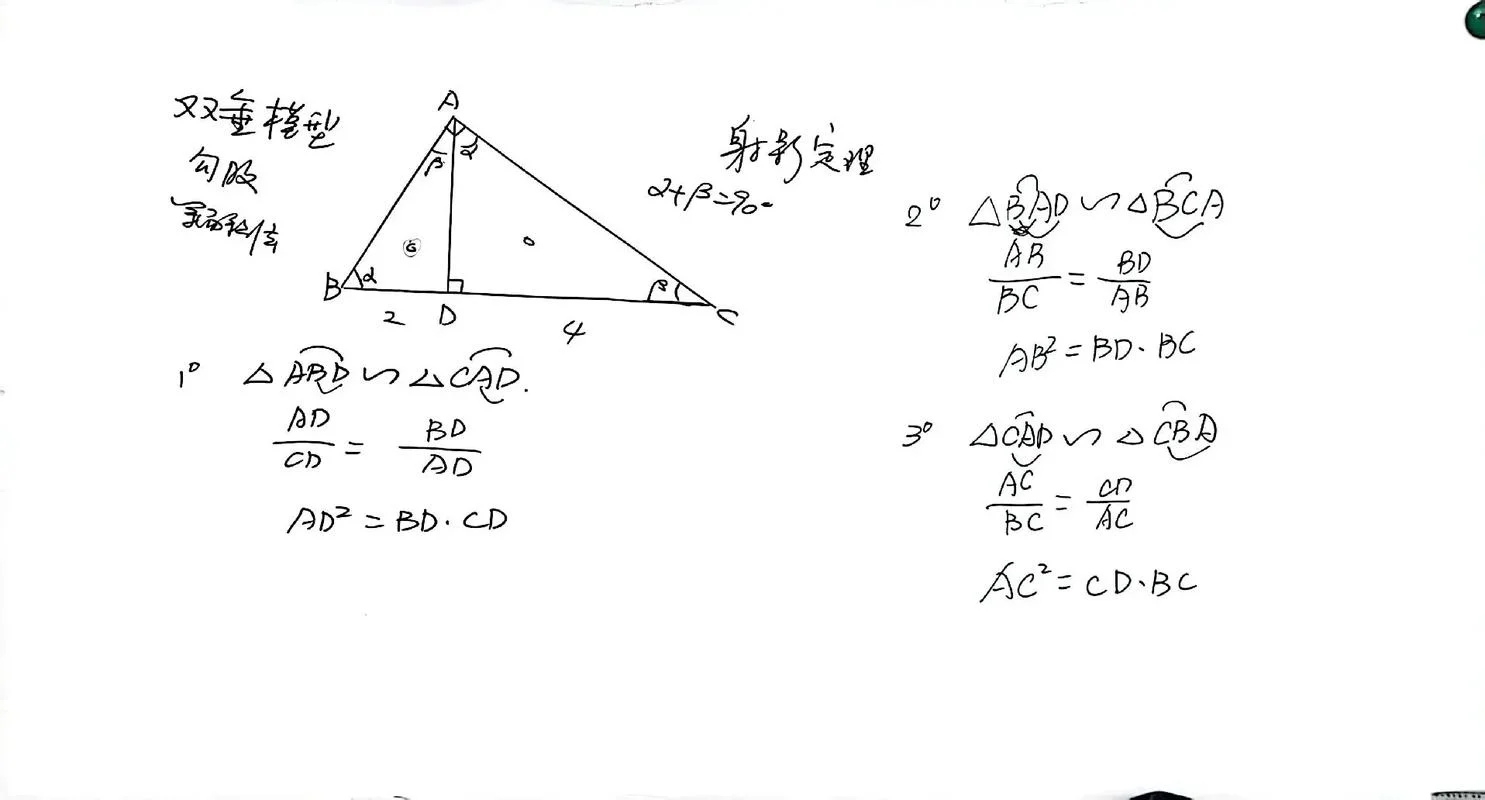 双垂模型
勾股
A
β α
B α
D
β C
2
4
射影定理
α+β=90°
1° △ABD∽△CAD.
AD/CD = BD/AD
AD² = BD·CD
2° △BAD∽△BCA
AB/BC = BD/AB
AB² = BD·BC
3° △CAD∽△CBA
AC/BC = CD/AC
AC² = CD·BC